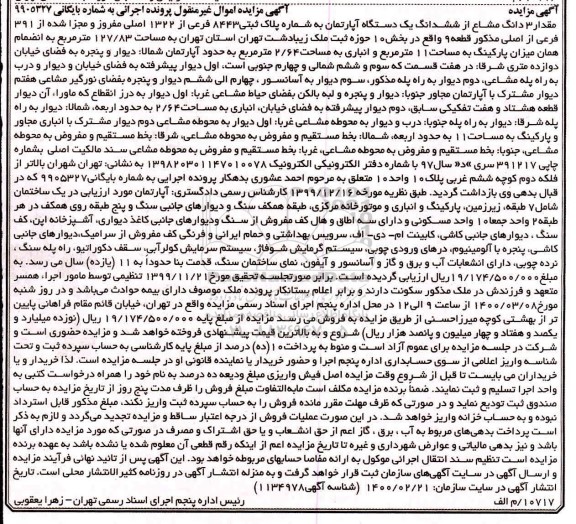 آگهی مزایده    آگهی مزایده اموال غیرمنقول پرونده اجرائی به شماره بایگانی ۹۹۰۵۳۲۷
مقدار ۳ دانگ مشاع از ششدانگ یک دستگاه آپارتمان به شماره پلاک ثبتی ۸۴۳۳ فرعی از ۱۳۲۲ اصلی مفروز و مجزا شده از ۳۹۱
فرعی از اصلی مذکور قطعه ۹ واقع در بخش ۱۰ حوزه ثبت ملک زیبادشت تهران استان تهران به مساحت ۱۲۷/۸۳ مترمربع به انضمام
همان میزان پارکینگ به مساحت ۱۱ مترمربع و انباری به مساحت ۲/۶۴ مترمربع به حدود آپارتمان شمالا: دیوار و پنجره به فضای خیابان
دوازده متری شرقا: در هفت قسمت که سوم و ششم شمالی و چهارم جنوبی است، اول دیوار پیشرفته به فضای خیابان و دیوار و درب
به راه پله مشاعی، دوم دیوار به راه پله مذکور، سوم دیوار به آسانسور ، چهارم الی ششم دیوار و پنجره بفضای نورگیر مشاعی هفتم
دیوار مشترک با آپارتمان مجاور جنوبا: دیوار و پنجره و لبه بالکن بفضای حیاط مشاعی غربا: اول دیوار به درز انقطاع که ماورا، آن دیوار
قطعه هشتاد و هفت تفکیکی سابق، دوم دیوار پیشرفته به فضای خیابان، انباری به مساحت ۲/۶۴ به حدود اربعه، شمالا: دیوار به راه
پله شرقا: دیوار به راه پله جنوبا: درب و دیوار به محوطه مشاعی غربا: اول دیوار به محوطه مشاعی دوم دیوار مشترک با انباری مجاور
و پارکینگ به مساحت ۱۱ به حدود اربعه، شمالا: بخط مستقیم و مفروض به محوطه مشاعی، شرقا: بخط مستقیم و مفروض به محوطه
مشاعی، جنوبا: بخط مستقیم و مفروض به محوطه مشاعی، غربا: بخط مستقیم و مفروض به محوطه مشاعی سند مالکیت اصلی بشماره
چاپی ۳۹۱۲۱۷ سری «د» سال ۹۷ با شماره دفتر الکترونیکی الکترونیک ۱۳۹۸۲۰۳۰۱۱۴۷۰۱۰۰۷۸ به نشانی: تهران شهران بالاتر از
فلکه دوم کوچه ششم غربی پلاک ۱۰ واحد ۱۰ متعلق به مرحوم احمد عشوری بدهکار پرونده اجرایی به شماره بایگانی ۹۹۰۵۳۲۷ که در
قبال بدهی وی بازداشت گردید. طبق نظریه مورخه ۱۳۹۹/۱۲/۱۶ کارشناس رسمی دادگستری: آپارتمان مورد ارزیابی در یک ساختمان
شامل ۷ طبقه، زیرزمین، پارکینگ و انباری و موتورخانه مرکزی، طبقه همکف سنگ و دیوارهای جانبی سنگ و پنج طبقه روی همکف در هر
طبقه ۲ واحد جمعا ۱۰ واحد مسکونی و دارای سه اطاق و هال کف مفروش از سنگ ودیوارهای جانبی کاغذ دیواری، آشپزخانه اپن، کف
سنگ ، دیوارهای جانبی کاشی، کابینت ام- دی- اف، سرویس بهداشتی و حمام ایرانی و فرنگی کف مفروش از سرامیک، دیوارهای جانبی
کاشی، پنجره با آلومینیوم، درهای ورودی چوبی، سیستم گرمایش شوفاژ، سیستم سرمایش کولرآبی، سقف دکوراتیو، راه پله سنگ ،
نرده چوبی، دارای انشعابات آب و برق و گاز و آسانسور و آیفون، نمای ساختمان سنگ، قدمت بنا حدوداً به ۱۱ (یازده) سال می رسد. به
مبلغ ۱۹/۱۷۴/۵۰۰/۰۰۰ ریال ارزیابی گردیده است. برابر صورتجلسه تحقیق مورخ ۱۳۹۹/۱۱/۲۱ تنظیمی توسط مامور اجرا، همسر
متعهد و فرزندش در ملک مذکور سکونت دارند و برابر اعلام بستانکار پرونده ملک موصوف دارای بیمه حوادث می‌باشد و در روز شنبه
مورخ ۱۴۰۰/۰۳/۰۸ از ساعت ۹ الی ۱۲ در محل اداره پنجم اجرای اسناد رسمی مزایده واقع در تهران، خیابان قائم مقام فراهانی پایین
تر از بهشتی کوچه میرزاحسنی از طریق مزایده به فروش می رسد. مزایده از مبلغ پایه ۱۹/۱۷۴/۵۰۰/۰۰۰ ریال (نوزده میلیارد و
یکصد و هفتاد و چهار میلیون و پانصد هزار ریال) شروع و به بالاترین قیمت پیشنهادی فروخته خواهد شد و مزایده حضوری است و
شرکت در جلسه مزایده برای عموم آزاد است و منوط به پرداخت ۱۰ (ده) درصد از مبلغ پایه کارشناسی به حساب سپرده ثبت و تحت
شناسه واریز اعلامی از سوی حسابداری اداره پنجم اجرا و حضور خریدار یا نماینده قانونی او در جلسه مزایده است. لذا خریدار و یا
خریداران می بایست تا قبل از شروع وقت مزایده اصل فیش واریزی مبلغ ودیعه ده درصد به نام خود را همراه درخواست کتبی به
واحد اجرا تسلیم و ثبت نمایند. ضمناً برنده مزایده مکلف است مابه‌التفاوت مبلغ فروش را ظرف مدت پنج روز از تاریخ مزایده به حساب
صندوق ثبت تودیع نماید و در صورتی که ظرف مهلت مقرر مانده فروش را به حساب سپرده ثبت واریز نکند، مبلغ مذکور قابل استرداد
نبوده و به حساب خزانه واریز خواهد شد. در این صورت عملیات فروش از درجه اعتبار ساقط و مزایده تجدید می‌گردد و لازم به ذکر
است پرداخت بدهی‌های مربوط به آب ، برق ، گاز اعم از حق انشعاب و یا حق اشتراک و مصرف در صورتی که مورد مزایده دارای آنها
باشد و نیز بدهی مالیاتی و عوارض شهرداری و غیره تا تاریخ مزایده اعم از اینکه رقم قطعی آن معلوم شده یا نشده باشد به عهده برنده
مزایده است تنظیم سند انتقال اجرائی موکول به ارائه مفاصا حسابهای مربوطه خواهد بود. این آگهی پس از تائید نهائی فرآیند مزایده
و ارسال آگهی در سایت آگهی‌های سازمان ثبت قرار خواهد گرفت و به منزله انتشار آگهی در روزنامه کثیر الانتشار محلی است. تاریخ
انتشار آگهی در سایت سازمان: ۱۴۰۰/۰۲/۲۱ (شناسه آگهی ۱۱۳۴۹۷۸)
۱۰۷۱۷/م الف    رئیس اداره پنجم اجرای اسناد رسمی تهران- زهرا یعقوبی